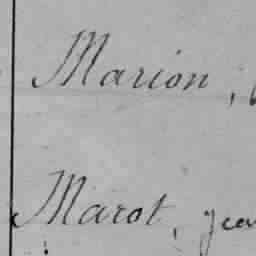 Marion,
Marot, jea